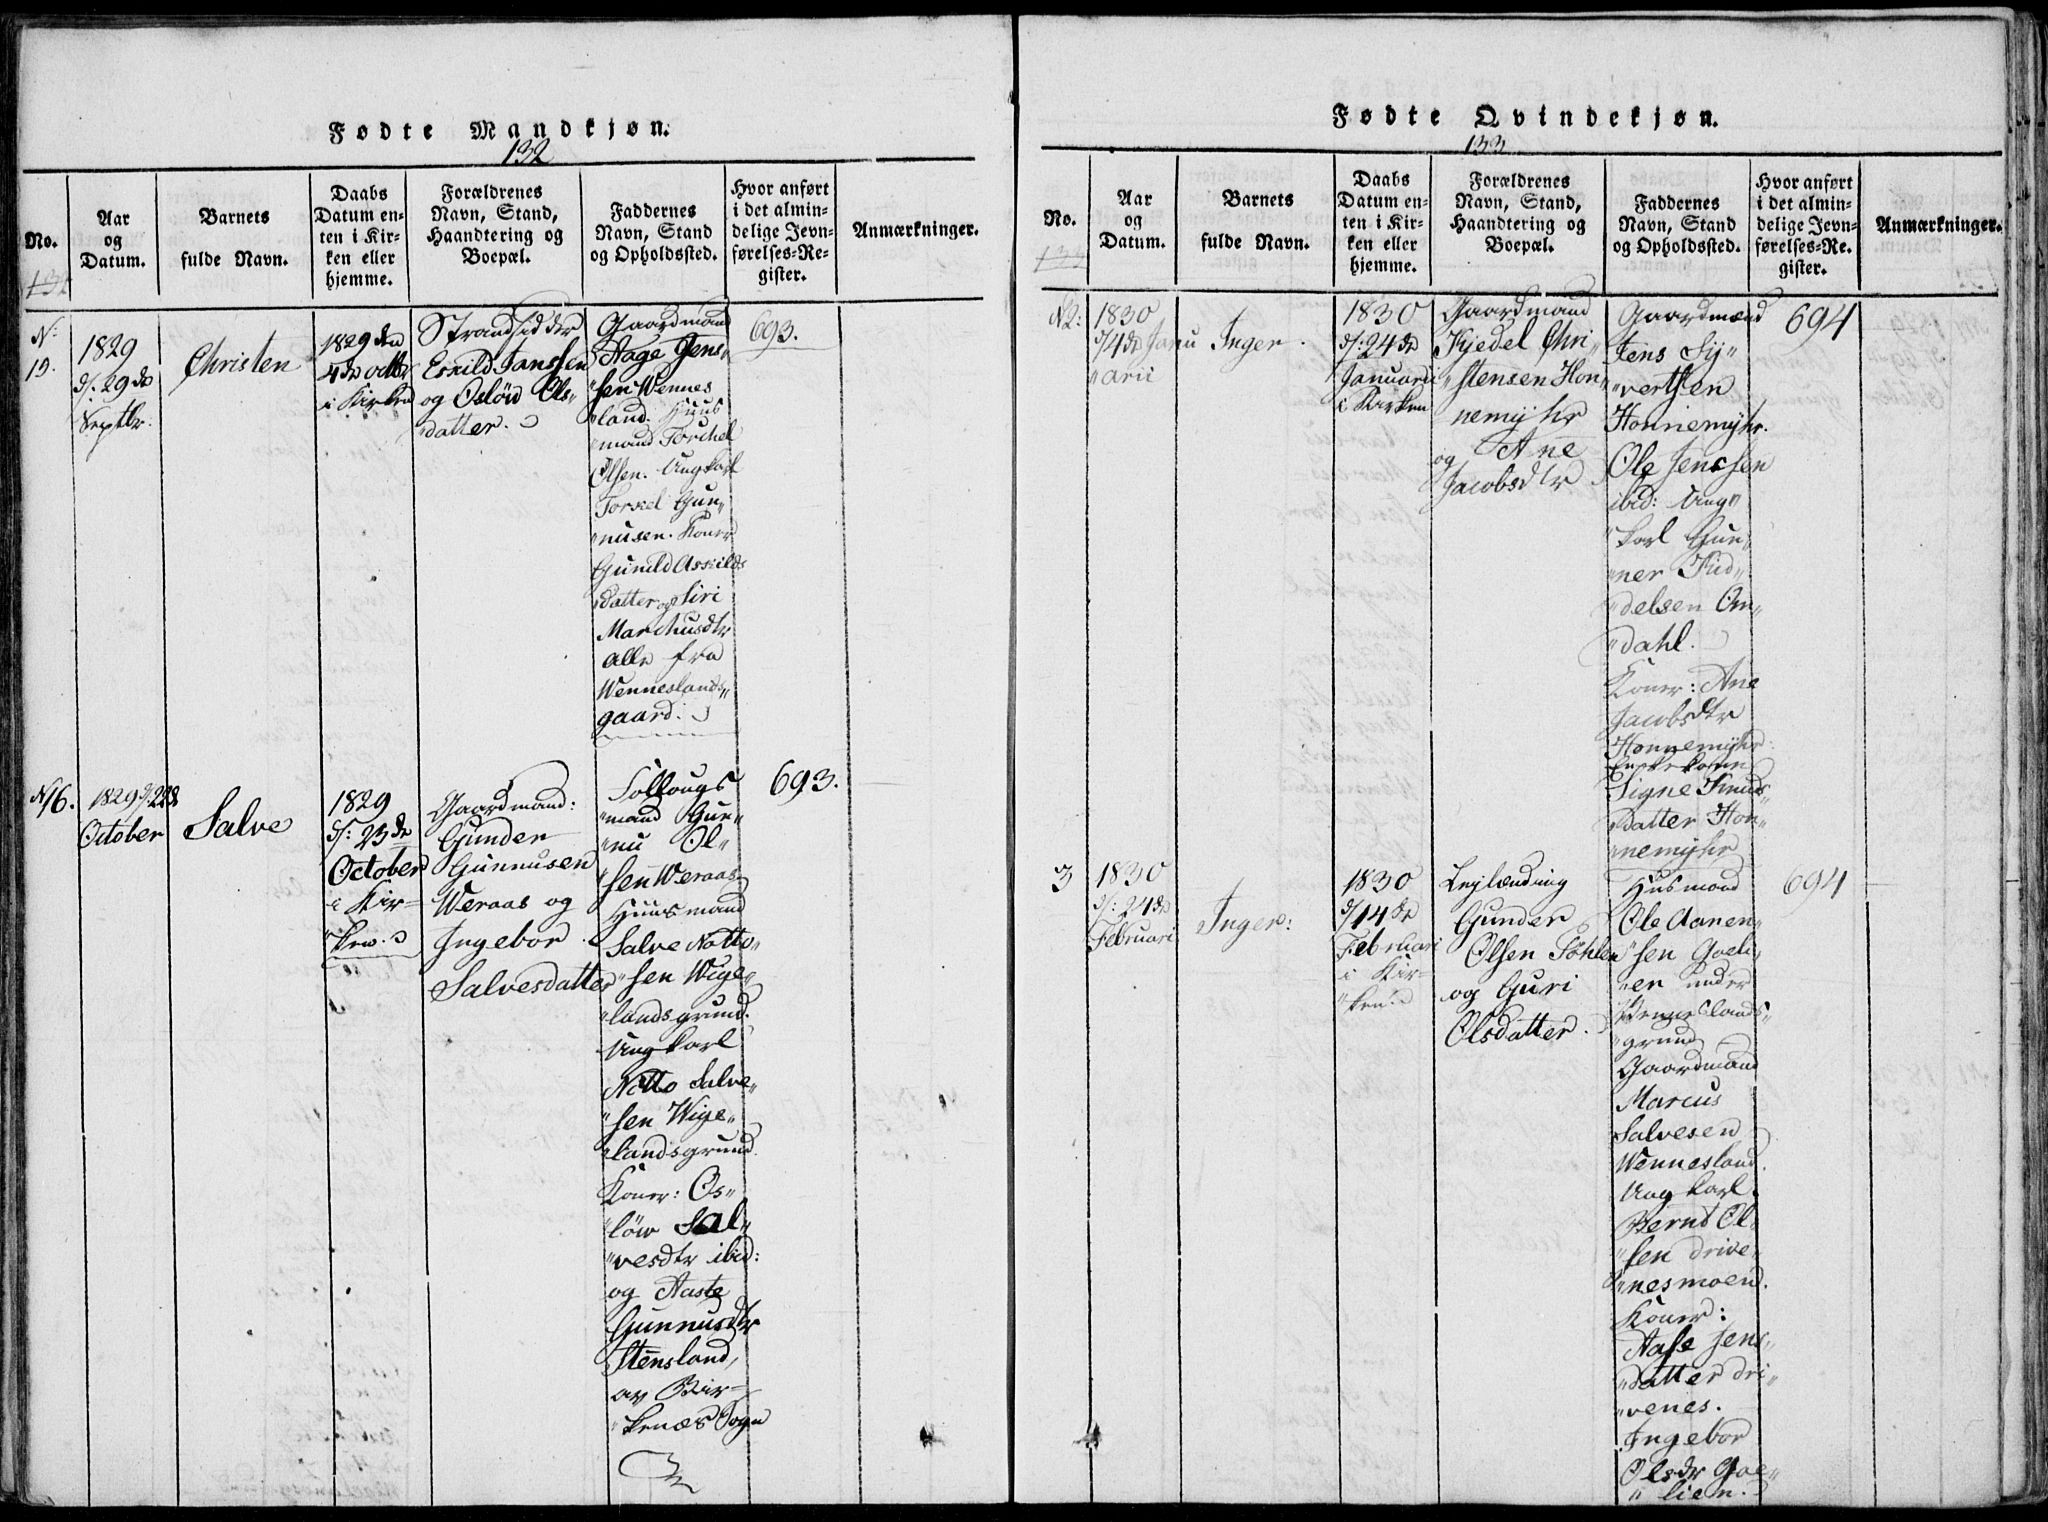 Fødte Mandkjøn.
132
No.
Aar
og
Datum.
Barnets
fulde Navn.
Daabs
Datum en-
ten i Kir-
ken eller
hjemme.
Forældrenes
Navn, Stand,
Haandtering og
Boepæl.
Faddernes
Navn, Stand
og Opholdssted.
Hvor anført
i det almin-
delige Jevn-
førelses-Re-
gister.
Anmærkninger.
N:
15.
1829
d: 29de
Septbr:
Christen
1829 den
4de octbr
i Kirken
Strandsidder
Eskild Janssen
og Osløw Ols-
"datter.
Gaardmand
Aage Jens-
"sen Wennes
"land. Huus
"mand Torchel
Olsen. Ungkarl
Torkel Gun-
"nusen. Koner
Gunild Askilds
"datter og Siri
Marchusdtr
alle fra
Wenneslands-
gaard.
693.
N16.
1829 d: 22de
October
Salve
1829
d: 23de
October
i Kir-
"ken.
Gaardmand:
Gunder
Gunnusen
Weraas og
Ingebor
Salvesdatter
Sollougs
"mand Gun-
"nu Ol-
"sen Weraas
Huusmand
Salve Notto-
"sen Wige-
"landsgrund.
Ungkarl
Notto Salve-
"sen Wige-
"landsgrund.
Koner: Os-
"löw Sal-
"vesdtr ibid:
og Aaste
Gunnusdtr
Stensland,
av Bir-
"kenæs Sogn
693.
Fødte Qvindekjøn.
133
No.
Aar
og
Datum.
Barnets
fulde Navn.
Daabs
Datum en-
ten i Kir-
ken eller
hjemme.
Forældrenes
Navn, Stand,
Haandtering og
Boepæl.
Faddernes
Navn, Stand
og Opholdssted.
Hvor anført
i det almin-
delige Jevn-
førelses-Re-
gister.
Anmærkninger.
N2:
1830
d/4de Janu
"arii
Inger
1830
d: 24de
Januarii
i Kirken
Gaardmand
Kjedel Chri-
"stensen Hon-
nemyhr
og Ane
Jacobsdtr
Gaardmænd
Jens Sy-
"vertsen
Honnemyhr.
Ole Jenssen
ibid: Ung-
"karl Gun-
"ner Fid-
"delsen Om-
"dahl.
Koner: Ane
Jacobsdtr
Honnemyhr:
Enkekone
Signe Knuds-
"datter Hon-
"nemyhr
694
3
1830
d: 24de
Februari
Inger:
1830
d/14de
Februari
i Kir-
"ken.
Lejlænding
Gunder
Olsen Söhlen
og Guri
Olsdatter.
Husmand
Ole Aanen-
"sen Goeli-
"en under
Wenneslands-
"grund
Gaardmand
Marcus
Salvesen
Wennesland.
Ungkarl
Bernt Ol-
"sen drive-
"nesmoen.
Koner:
Aase Jens-
"datter dri-
"venes.
Ingebor
Olsdr Goe-
"lien.
694